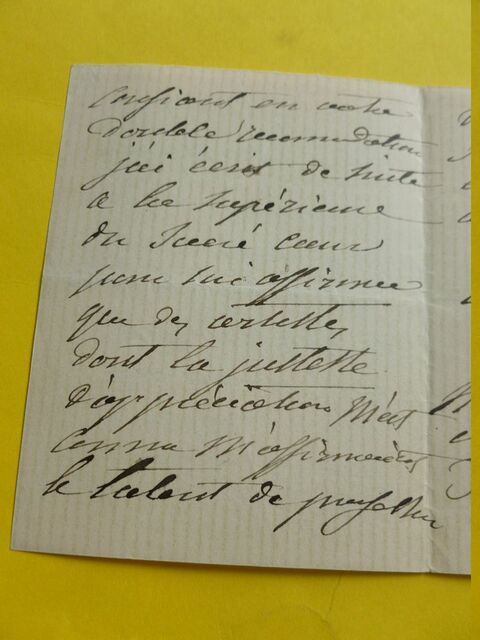 confiant en votre
double recommdation
j'ai écrit de suite
a la supérieure
du Sacré cœur
pour lui affirmer
que des artistes
dont la justesse
d'appréciation m'est
connu m'affirmaient
le talent de professeur